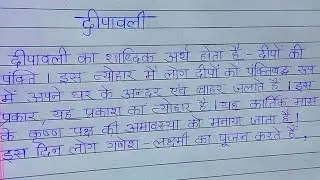 दीपावली
दीपावली का शाब्दिक अर्थ होता है - दीपों की
पंक्ति । इस त्योहार में लोग दीपों को पंक्तिबद्ध रूप
में अपने घर के अन्दर एवं बाहर जलाते हैं । इस
प्रकार यह प्रकाश का त्योहार है । यह कार्तिक मास
के कृष्ण पक्ष की अमावस्या को मनाया जाता है ।
इस दिन लोग गणेश - लक्ष्मी का पूजन करते हैं,